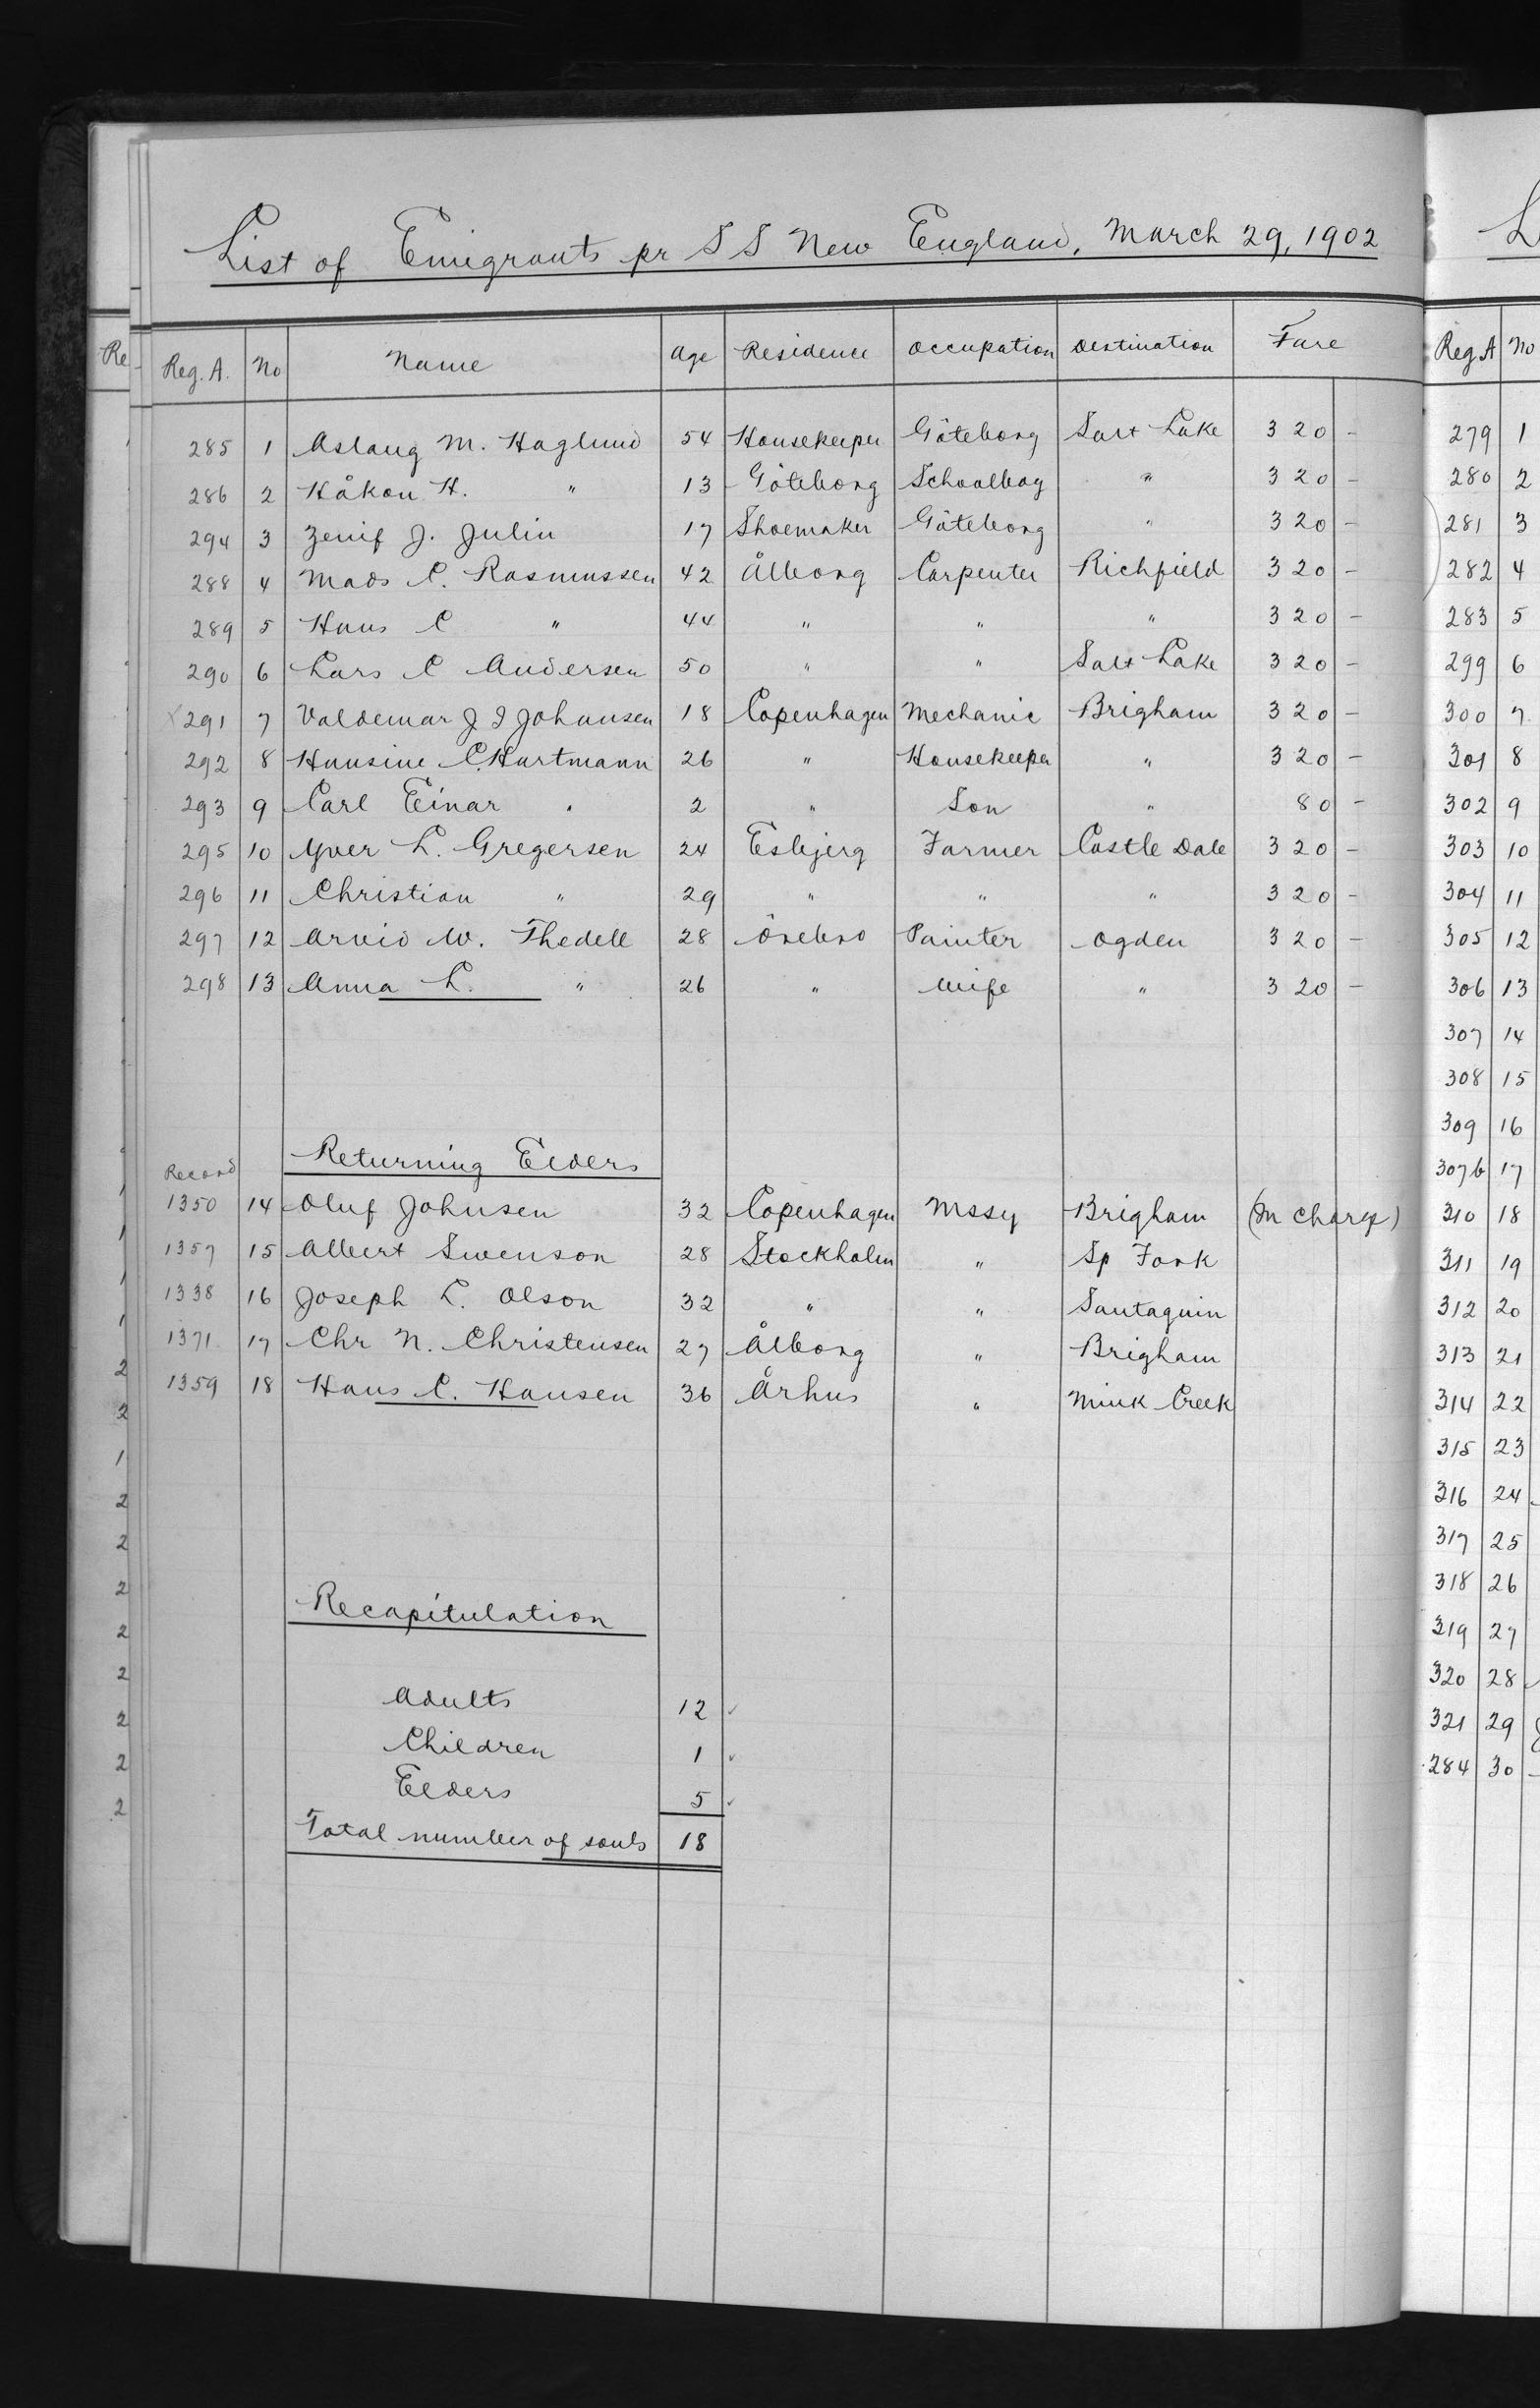 List of Emigrants pr S S New England, March 29, 1902
Reg. A. No Name Age Residence Occupation Destination Fare
285 1 Aslaug M. Haglund 54 Housekeeper Göteborg Salt Lake 320 -
286 2 Håkon H. " 13 Göteborg Schoolboy " 320 -
294 3 Zenif J. Julin 17 Shoemaker Göteborg " 320 -
288 4 Mads C. Rasmussen 42 Ålborg Carpenter Richfield 320 -
289 5 Hans C " 44 " " " 320 -
290 6 Lars C Andersen 50 " " Salt Lake 320 -
x 291 7 Valdemar J I Johansen 18 Copenhagen Mechanic Brigham 320 -
292 8 Hansine C. Hartmann 26 " Housekeeper " 320 -
293 9 Carl Einar " 2 " Son " 80 -
295 10 Yver L. Gregersen 24 Esbjerg Farmer Castle Dale 320 -
296 11 Christian " 29 " " " 320 -
297 12 Arvid W. Thedell 28 Örebro Painter Ogden 320 -
298 13 Anna L. " 26 " Wife " 320 -
Returning Elders
Record
1350 14 Oluf Johnsen 32 Copenhagen Mssy Brigham (In charge)
1357 15 Albert Swenson 28 Stockholm " Sp Fork
1338 16 Joseph L. Olson 32 " " Santaquin
1371 17 Chr N. Christensen 27 Ålborg " Brigham
1359 18 Hans C. Hansen 36 Århus " Mink Creek
Recapitulation
Adults 12 ✓
Children 1 ✓
Elders 5 ✓
Total number of souls 18
Reg A No
279 1
280 2
281 3
282 4
283 5
299 6
300 7
301 8
302 9
303 10
304 11
305 12
306 13
307 14
308 15
309 16
307b 17
310 18
311 19
312 20
313 21
314 22
315 23
316 24
317 25
318 26
319 27
320 28
321 29
284 30